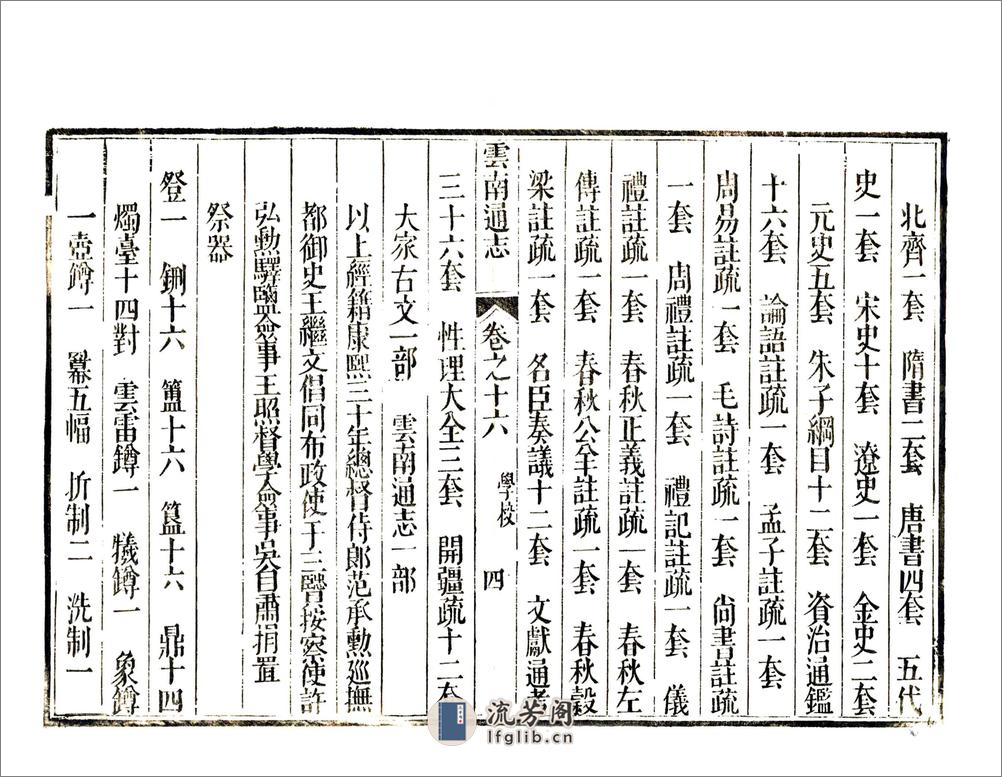 北齊一套　隋書二套　唐書四套　五代
史一套　宋史十套　遼史一套　金史二套
元史五套　朱子綱目十二套　資治通鑑
十六套　論語註疏一套　孟子註疏一套
周易註疏一套　毛詩註疏一套　尚書註疏
一套　周禮註疏一套　禮記註疏一套　儀
禮註疏一套　春秋正義註疏一套　春秋左
傳註疏一套　春秋公羊註疏一套　春秋穀
梁註疏一套　名臣奏議十二套　文獻通考
雲南通志　卷之十六　學校　四
三十六套　性理大全三套　開疆疏十二套
大家古文一部　雲南通志一部
以上經籍康熙三十年總督侍郎范承勳巡撫
都御史王繼文倡同布政使于三賢按察使許
弘勳驛鹽僉事王照督學僉事吳自肅捐置
祭器
登一　鉶十六　簠十六　簋十六　鼎十四
燭臺十四對　雲雷鐏一　犧鐏一　象鐏
一壺鐏一　冪五幅　折制二　洗制一
流芳阁
lfglib.cn